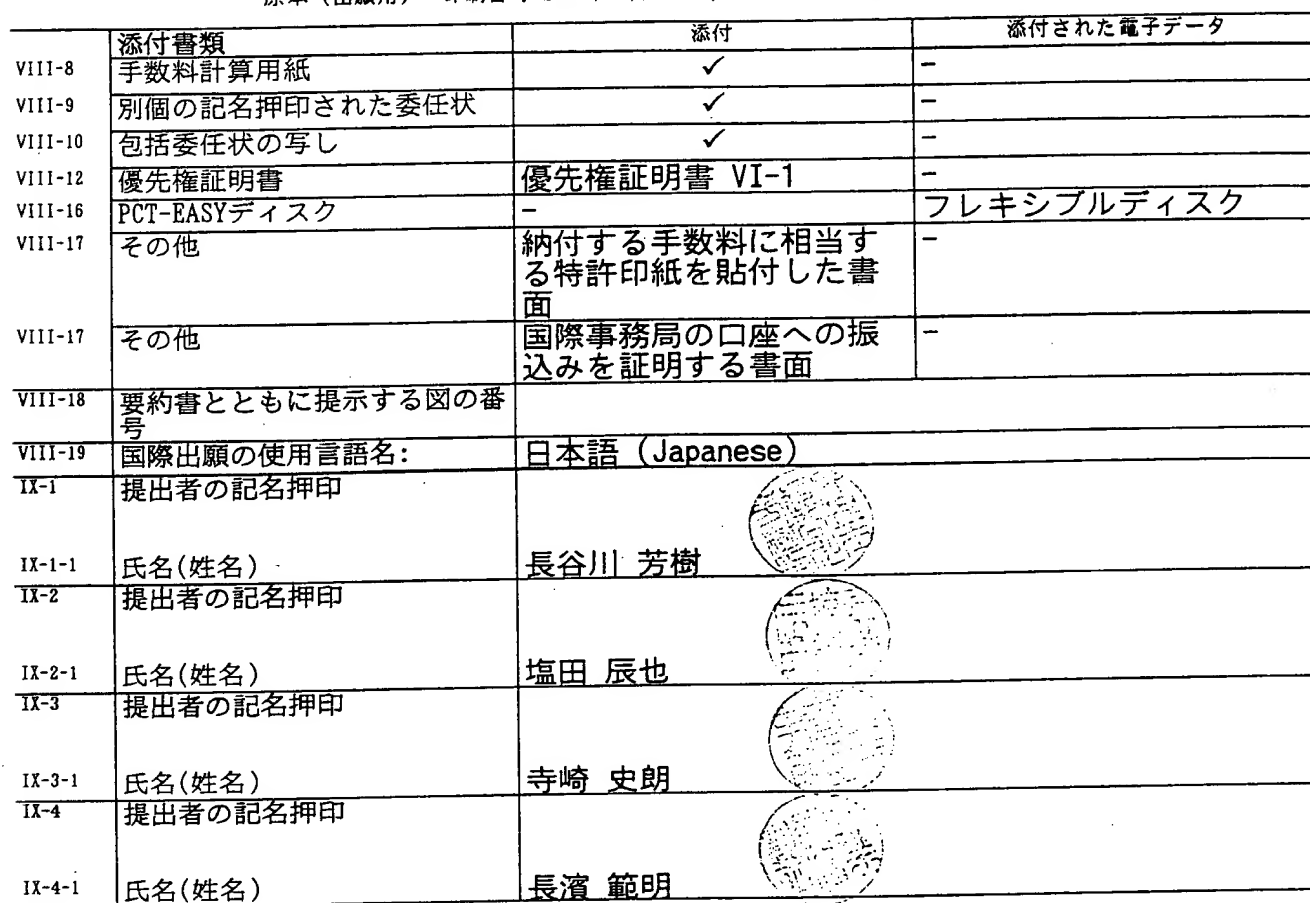 添付書類 添付 添付された電子データ
VIII-8 手数料計算用紙 ✓ -
VIII-9 別個の記名押印された委任状 ✓ -
VIII-10 包括委任状の写し ✓ -
VIII-12 優先権証明書 優先権証明書 VI-1 -
VIII-16 PCT-EASYディスク - フレキシブルディスク
VIII-17 その他 納付する手数料に相当す -
る特許印紙を貼付した書
面
VIII-17 その他 国際事務局の口座への振 -
込みを証明する書面
VIII-18 要約書とともに提示する図の番
号
VIII-19 国際出願の使用言語名: 日本語 (Japanese)
IX-1 提出者の記名押印
IX-1-1 氏名(姓名) 長谷川 芳樹
IX-2 提出者の記名押印
IX-2-1 氏名(姓名) 塩田 辰也
IX-3 提出者の記名押印
IX-3-1 氏名(姓名) 寺崎 史朗
IX-4 提出者の記名押印
IX-4-1 氏名(姓名) 長濱 範明